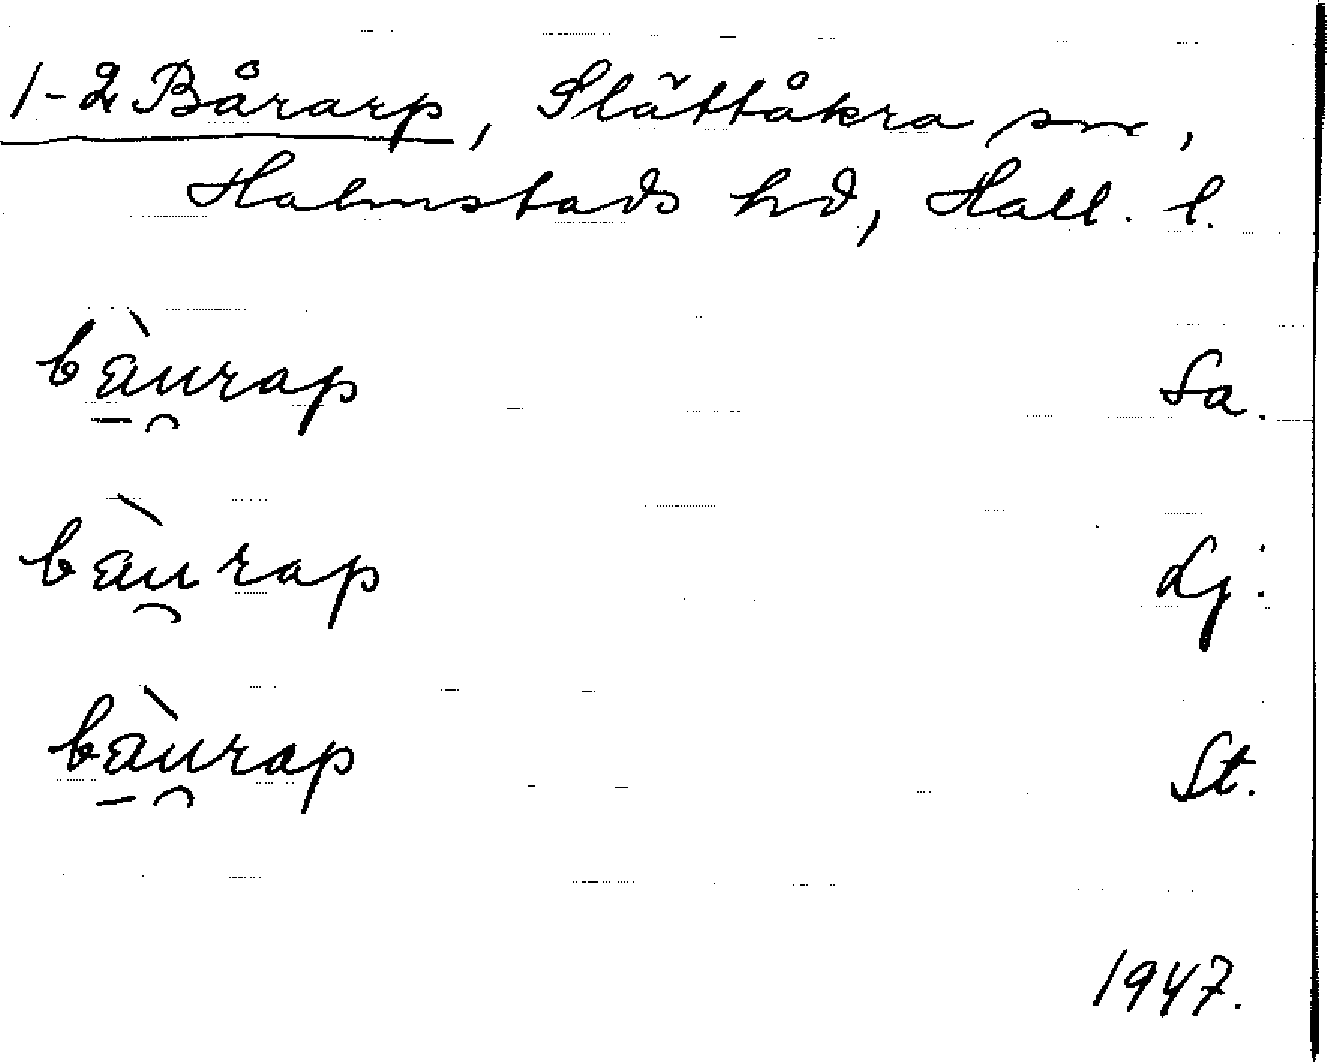 1-2 Bårarp, Slättåkra sn,
Halmstads hd, Hall. l.
bàu̯rap Sa.
bàu̯rap Lj.
bàu̯rap St.
1947.